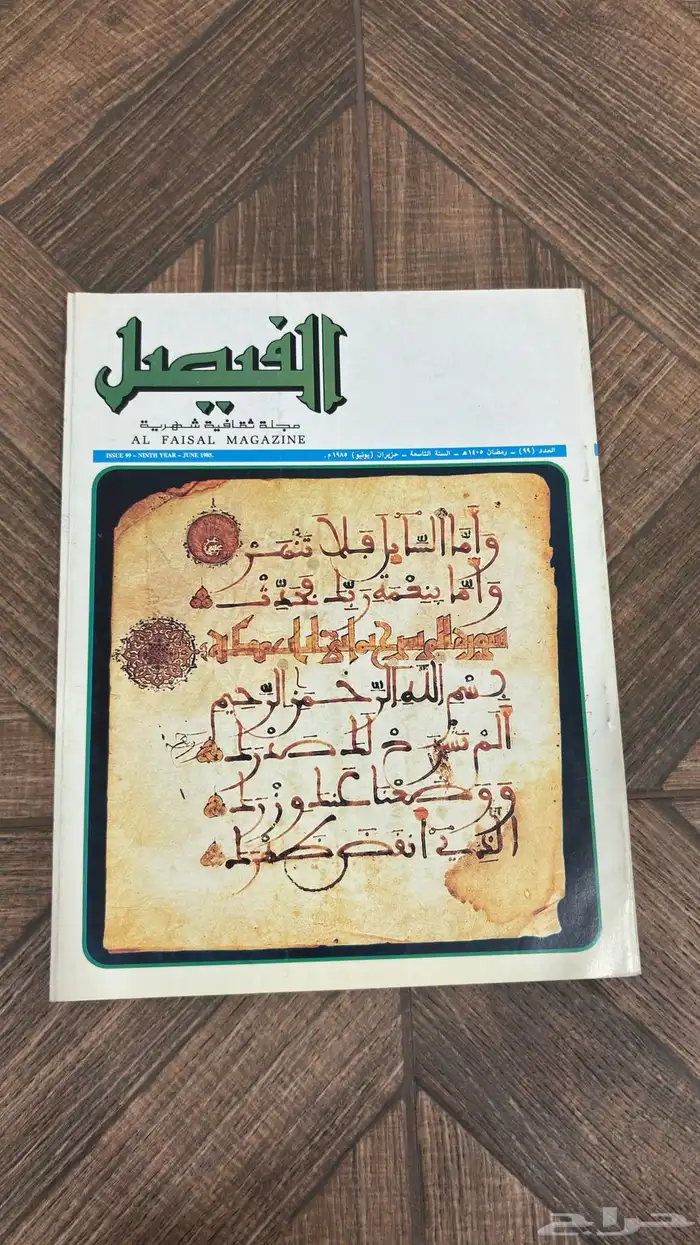 الفيصل
مجلة ثقافية شهرية
AL FAISAL MAGAZINE
ISSUE 99 – NINTH YEAR – JUNE 1985.
العدد (٩٩) – رمضان ١٤٠٥هـ – السنة التاسعة – حزيران (يونيو) ١٩٨٥م.
وَأَمَّا السَّائِلَ فَلَا تَنْهَرْ
وَأَمَّا بِنِعْمَةِ رَبِّكَ فَحَدِّثْ
سورة
بِسْمِ اللَّهِ الرَّحْمَنِ الرَّحِيمِ
أَلَمْ نَشْرَحْ لَكَ صَدْرَكَ
وَوَضَعْنَا عَنكَ وِزْرَكَ
الَّذِي أَنقَضَ ظَهْرَكَ
حراج